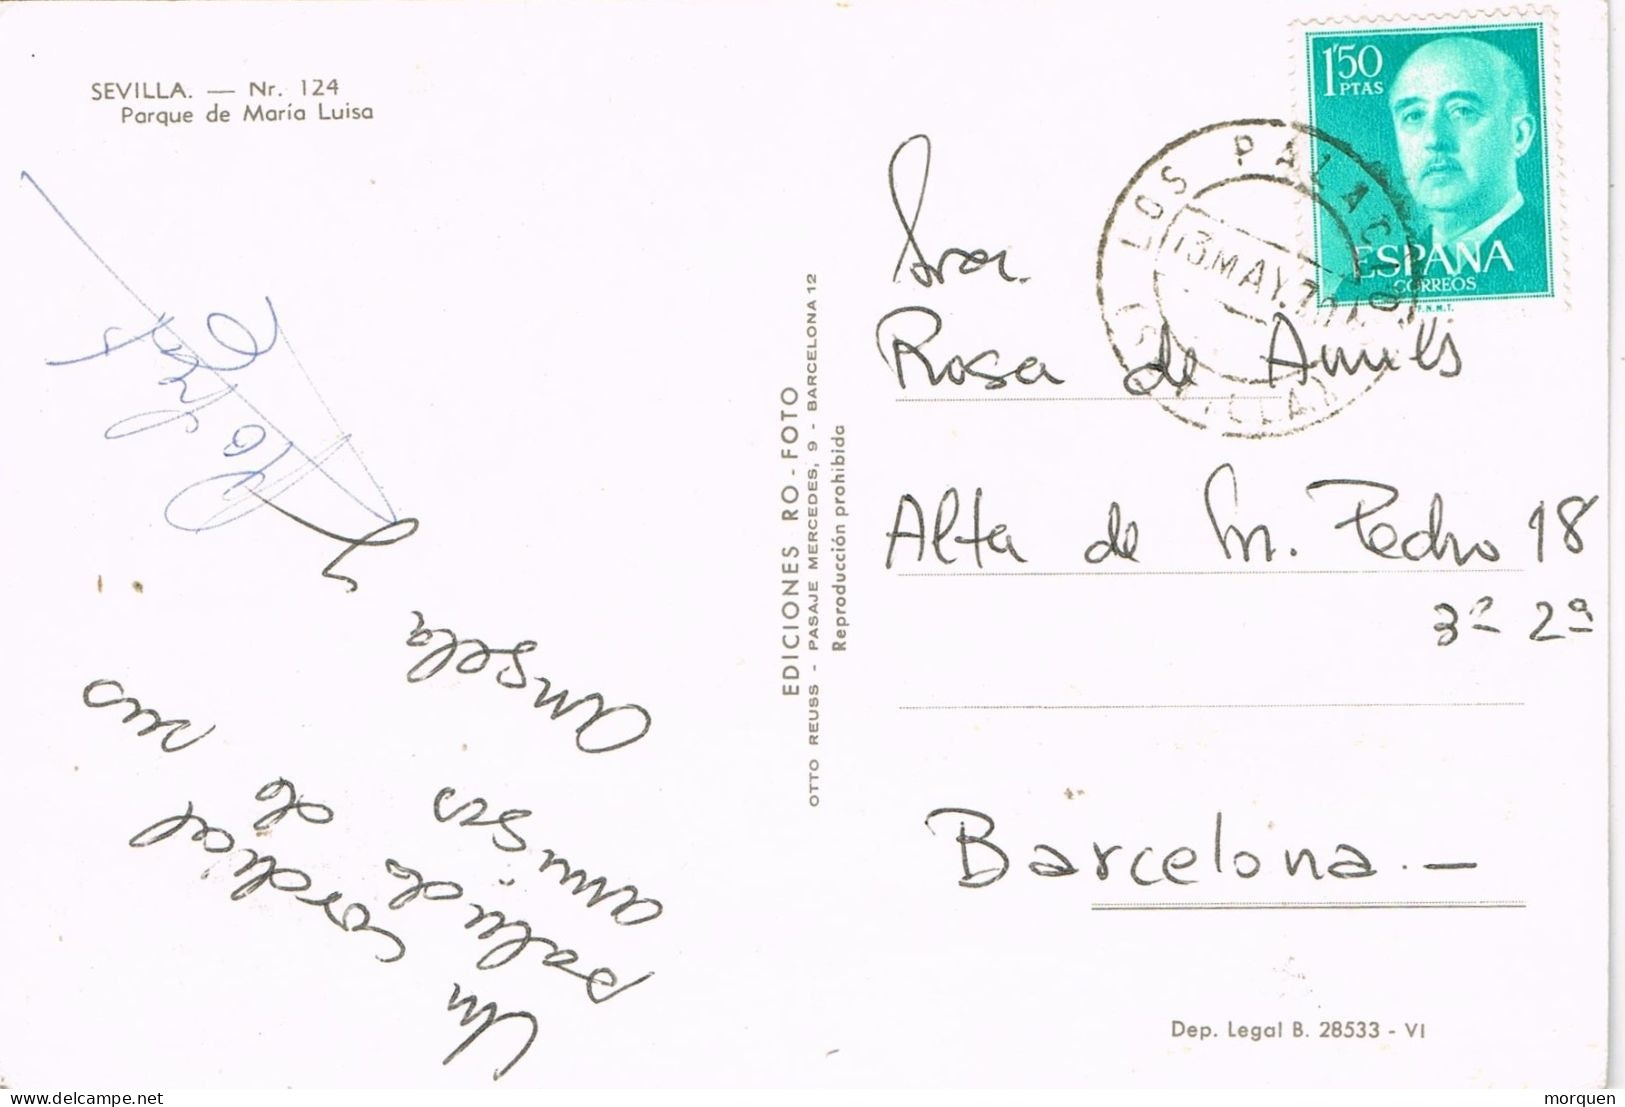 SEVILLA. — Nr. 124
Parque de María Luisa
Un cordial
saludo de sus
amigos
Angela y
EDICIONES RO - FOTO
OTTO REUSS - PASAJE MERCEDES, 9 - BARCELONA 12
Reproducción prohibida
1'50
PTAS
ESPAÑA
CORREOS
F.N.M.T.
LOS PALACIOS
13 MAY. 70
(SEVILLA)
Sra
Rosa de Amills
Alta de Sn. Pedro 18
3º 2ª
Barcelona.—
Dep. Legal B. 28533 - VI
morquen